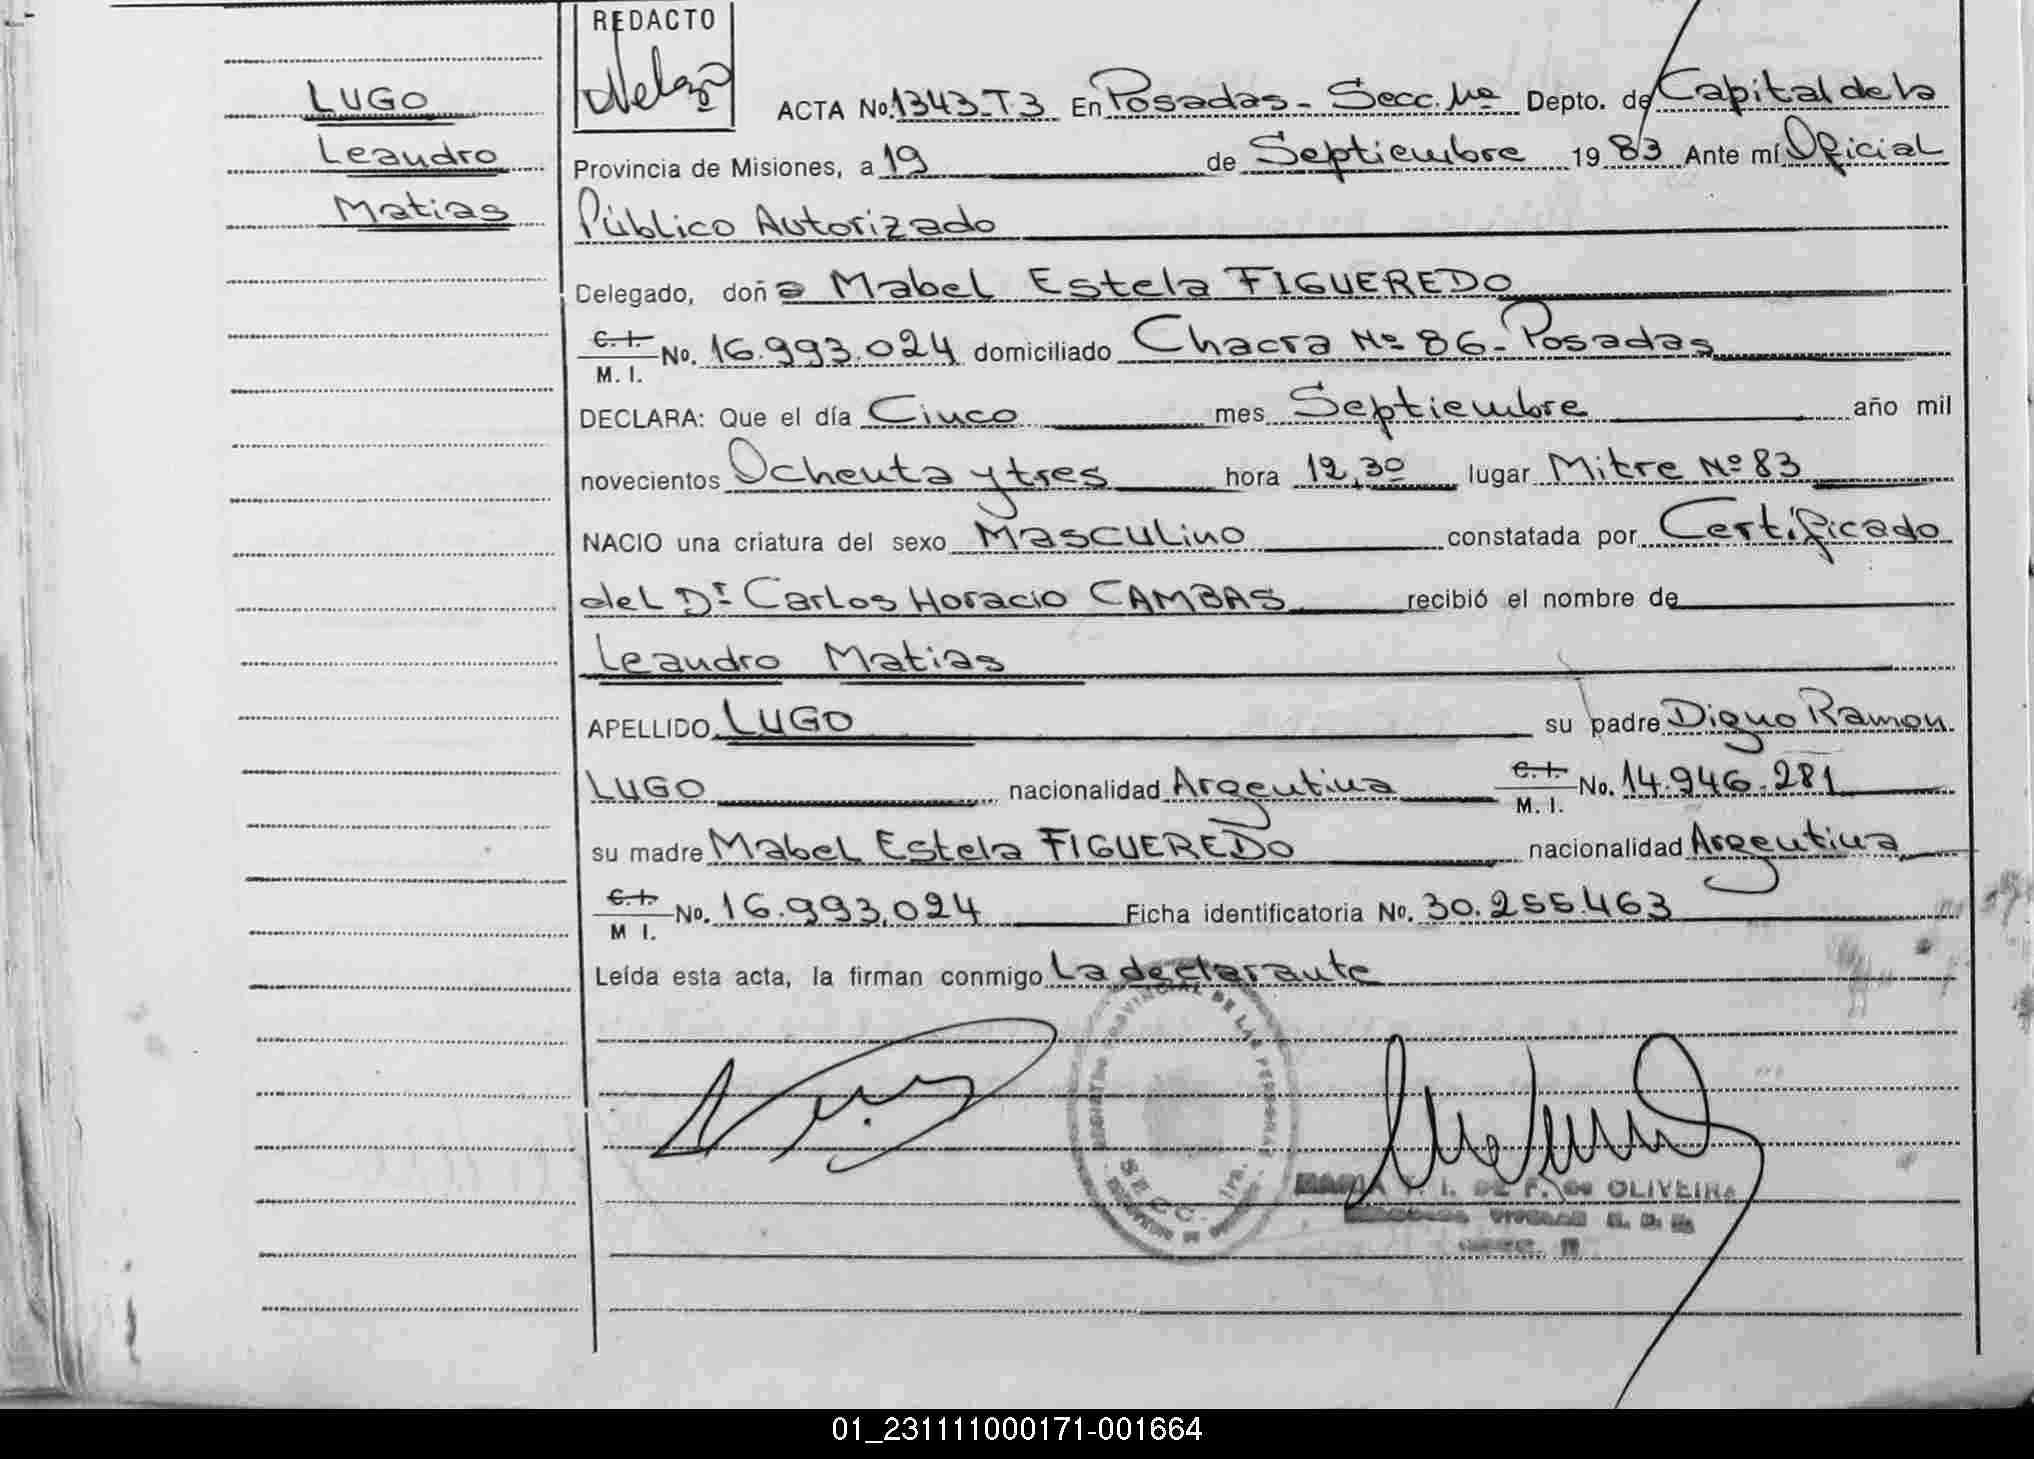 REDACTO
LUGO
Leandro
Matias
ACTA No. 1343-T.3 En Posadas - Secc. 1ra Depto. de Capital de la
Provincia de Misiones, a 19 de Septiembre 1983 Ante mí Oficial
Público Autorizado
Delegado, doña Mabel Estela FIGUEREDO
C. I.
M. I. No. 16.993.024 domiciliado Chacra Nº 86 - Posadas
DECLARA: Que el día Cinco mes Septiembre año mil
novecientos Ochenta y tres hora 12,30 lugar Mitre Nº 83
NACIO una criatura del sexo Masculino constatada por Certificado
del Dr Carlos Horacio CAMBAS recibió el nombre de
Leandro Matias
APELLIDO LUGO su padre Digno Ramon
LUGO nacionalidad Argentina C. I.
M. I. No. 14.946.281
su madre Mabel Estela FIGUEREDO nacionalidad Argentina
C. I.
M I. No. 16.993.024 Ficha identificatoria No. 30.255.463
Leída esta acta, la firman conmigo La declarante
PROVINCIAL DE LAS PERSONAS
SECC. 1ra.
OLIVEIRA
01_231111000171-001664